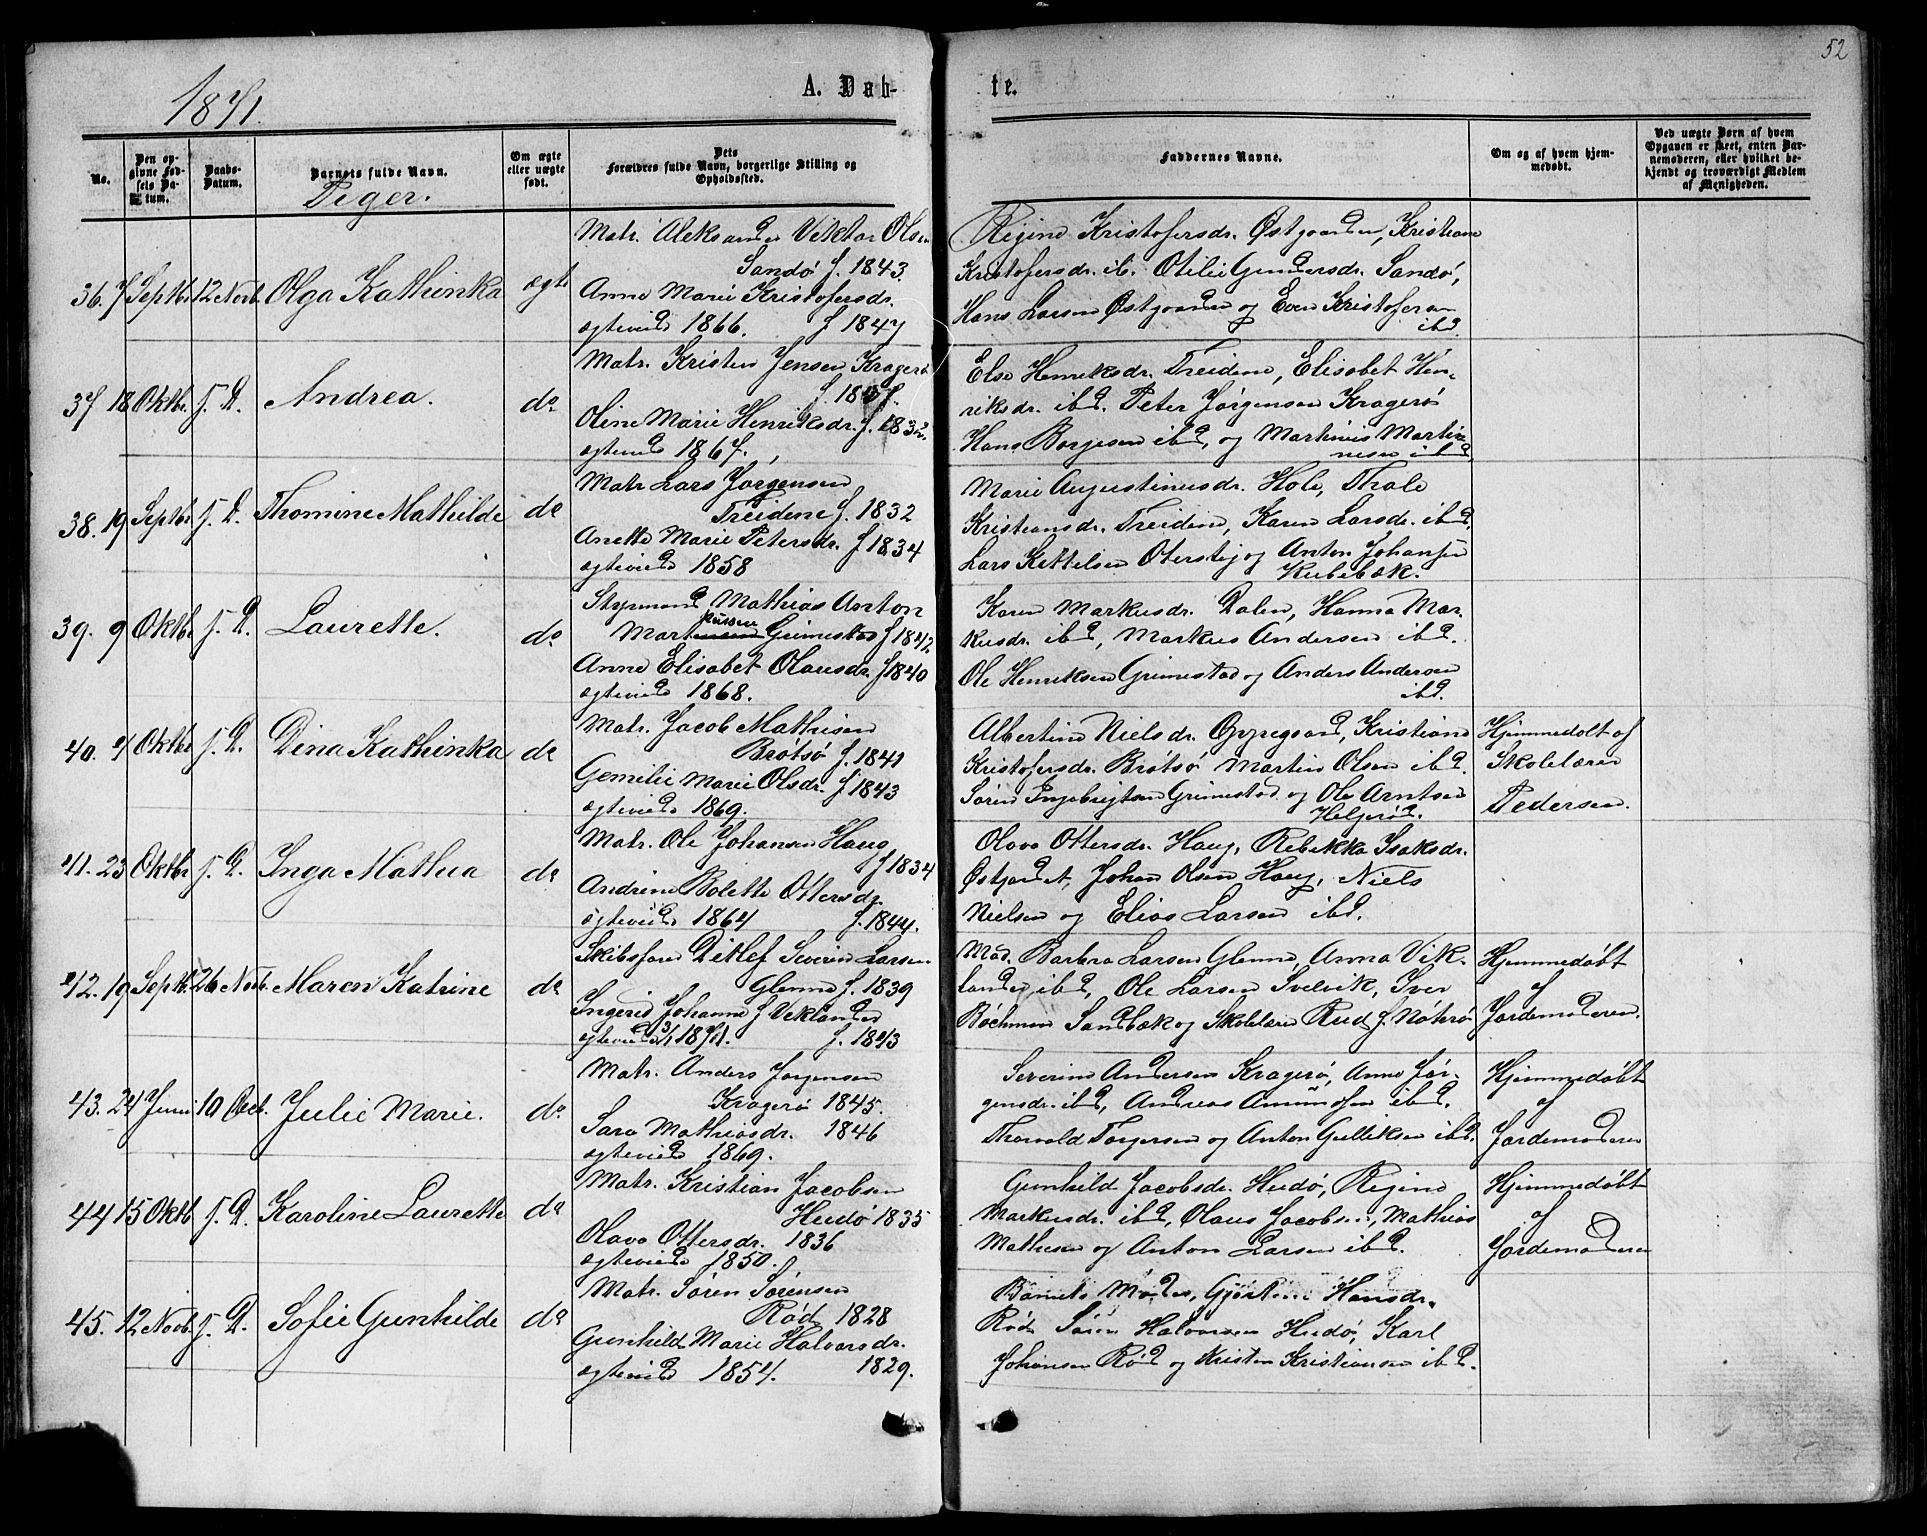 52
1871.
A. Døb-
te.
No.
Den op-
givne Fød-
sels Da-
tum.
Daabs-
Datum.
Barnets fulde Navn.
Piger.
Om ægte
eller uægte
født.
Dets
Forældres fulde Navn, borgerlige Stilling og
Opholdssted.
Faddernes Navne.
Om og af hvem hjem-
medøbt.
Ved uægte Børn af hvem
Opgaven er skeet, enten Bar-
nemoderen, eller hvilket be-
kjendt og troværdigt Medlem
af Menigheden.
36. 7 Septbr 12 Novb. Olga Kathinka ægte
Matr. Aleksander Viktor Olsen
Sandø f. 1843.
Anne Marie Kristofersdr.
ægteviede 1866. f 1847
Regine Kristofersdr. Østgaarden, Kristiane
Kristofersdr. ib. Otilie Gundersdr. Sandø,
Hans Larsen Østgaarden og Even Kristofersen
ibd.
37 18 Oktbr. f. D. Andrea. do
Matr. Kristen Jensen Kragerø
Oline Marie Henriksdr. f. 1832.
ægteviede 1867.
Else Henriksdr. Treidene, Elisabet Hen-
riksdr. ibd. Peter Jørgensen Kragerø
Hans Borgesen ibd, og Martinius Martin-
nesen ibd.
38. 19 Septbr f. D. Thomine Mathilde do
Matr Lars Jørgensen
Treidene f. 1832
Anette Marie Petersdr. f 1834
ægteviede 1858
Marie Augustinusdr. Hole, Thale
Kristiansdr. Treidene, Karen Larsdr. ibd.
Lars Kettelsen Oterstig og Anton Johansen
Kubebæk.
39. 9 Oktbr f. D. Laurette. do
Styrmand Mathias Anton
Mart Grimestad f 1842
Anne Elisabet Olausdr. f 1840
ægteviede 1868.
Karen Markusdr. Dalen, Hanna Mar-
kusdr. ibd, Markus Andersen ibd.
Ole Henriksen Grimestad og Anders Andersen
ibd.
40. 4 Oktbr f. D. Dina Kathinka do
Matr. Jacob Mathisen
Brøtsø f. 1841
Gemilie Marie Olsdr. f 1843
ægteviede 1869.
Albertine Nielsdr. Oppegaard, Kristiane
Kristofersdr. Brøtsø Martin Olsen ibd.
Søren Ingebrigtsen Grimestad og Ole Arntsen
Helgerød.
Hjemmedøbt af
Skolelærer
Pedersen.
41. 23 Oktbr f. D. Inga Mathea do
Matr. Ole Johansen Haug
f 1834
Andrine Bolette Ottersdr.
ægteviede 1864 f. 1844.
Olava Ottersdr. Haug, Rebekka Isaksdr.
Østjordet, Johan Olsen Haug, Niels
Nielsen og Elias Larsen ibd.
42. 19 Septb. 26 Novb. Maren Katrine do
Skibsfører Ditlef Severin Larsen
Glenne f. 1839
Ingerid Johanne f Viklander
ægteviede 3/1 1871. f. 1843
Mad. Barbra Larsen Glenne, Anna Vik-
lander ibd, Ole Larsen Svelvik, Iver
Bøchman Sandbæk og Skolelærer Rud f. Nøterø
Hjemmedøbt
af
Jordemoderen.
43. 24 Juni 10 Decb. Julie Marie. do
Matr. Anders Jørgensen
Kragerø 1845.
Sara Mathiasdr. 1846
ægteviede 1869.
Severine Andersen Kragerø, Anne Jør-
gensdr. ibd, Andreas Amundsen ibd.
Thorvald Torgersen og Anton Gulliksen ibd.
Hjemmedøbt
af
Jordemoderen
44 15 Oktb f. D. Karoline Laurette do
Matr. Kristian Jacobsen
Hudø 1835
Olava Ottersdr. 1836
ægteviede 1850.
Gunhild Jacobsdr. Hudø, Regine
Markusdr. ibd, Olaus Jacobsen, Mathias
Mathisen og Anton Larsen ibd.
Hjemmedøbt
af
Jordemoderen
45. 12 Novb. f. D. Sofie Gunhilde do
Matr. Søren Sørensen
Rød 1828
Gunhild Marie Halvorsdr.
ægteviede 1854. 1829.
Barnets Moder, Hansdr.
Rød Søren Halvorsen Hudø, Karl
Johansen Rød og Kristen Kristiansen ibd.